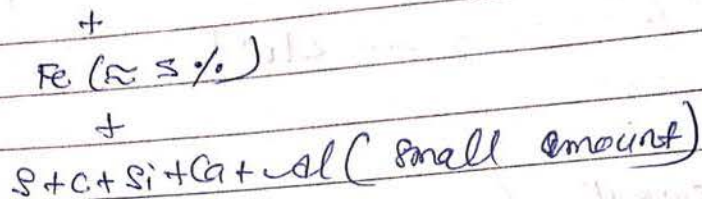 +
Fe (≈ 5%)
+
S+C+Si+Ca+Al ( small amount)